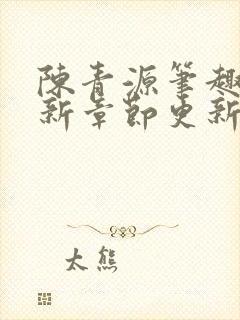 陳青源筆趣
新章節更新
太熊